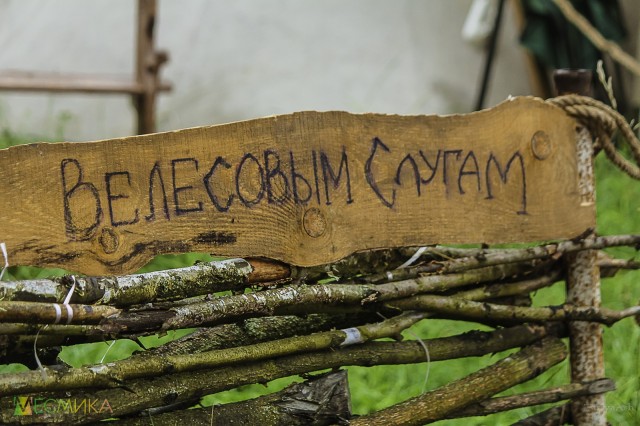 Велесовым Слугам
МЕОМИКА